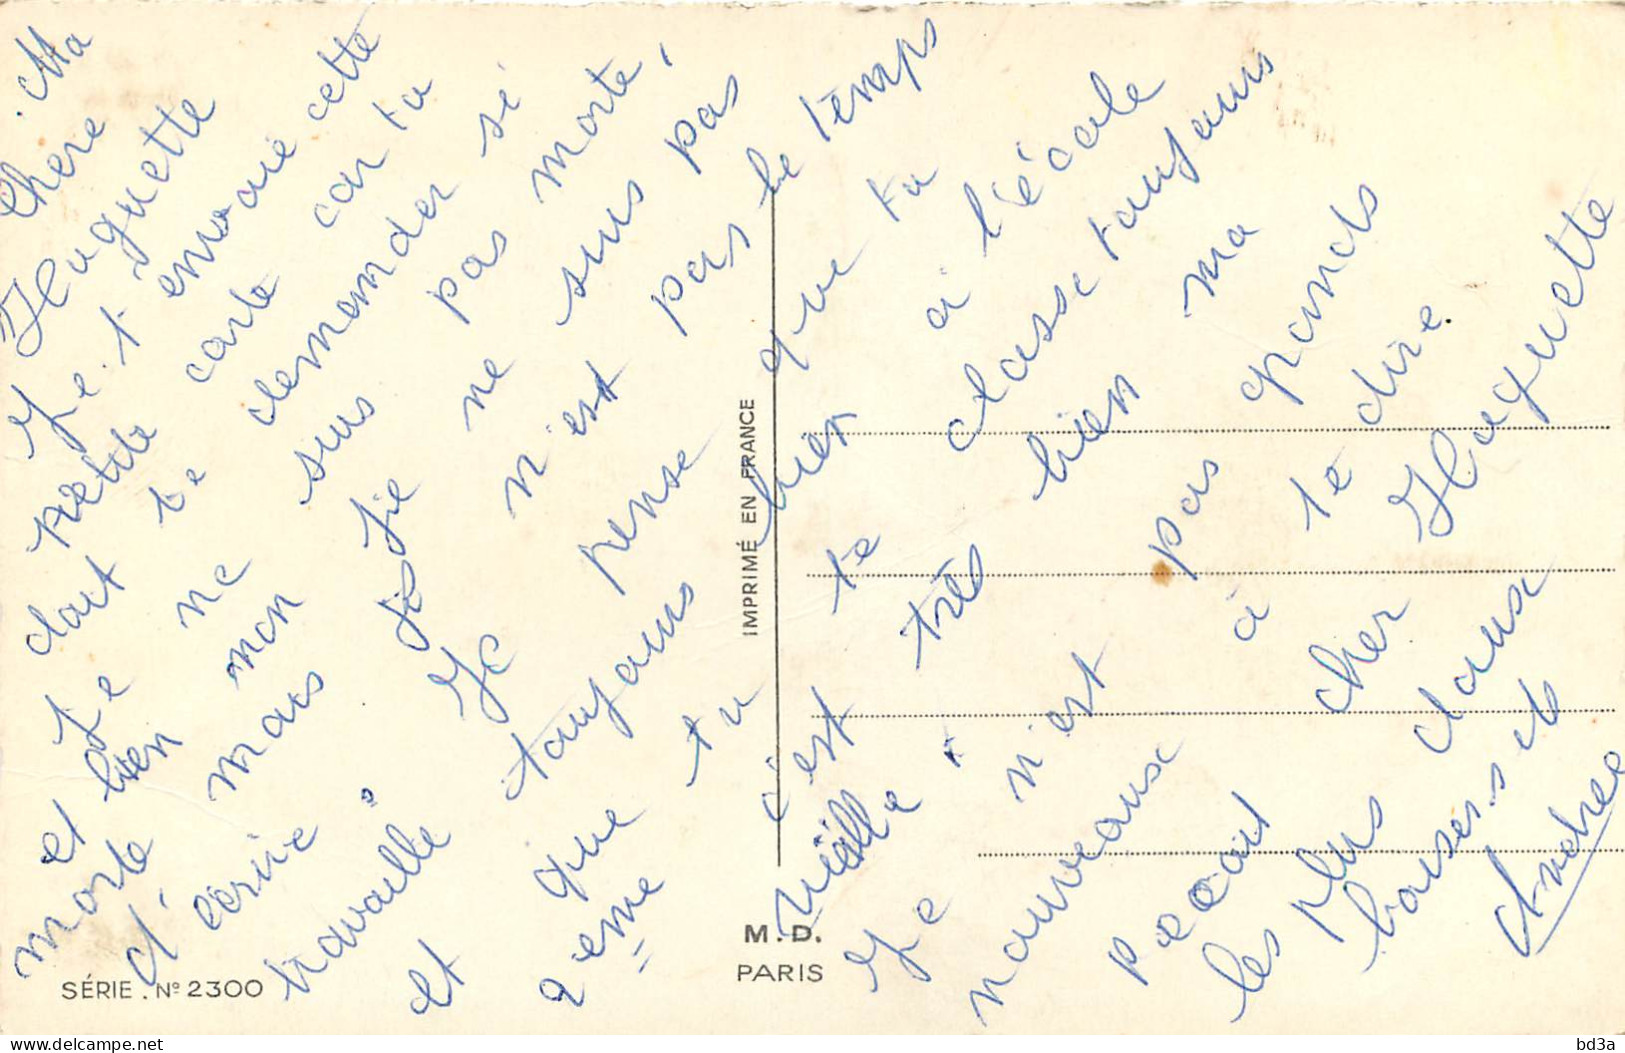 Ma
Chere
Huguette
Je t'envoie cette
petite carte car tu
doit te demander si
Je ne suis pas morte,
et bien non Je ne suis pas
morte mais Je n'est pas le temps
d'écrire
travaille toujours
et Je pense que tu
que tu
2eme
c'est
hier
te
a l'école
classe toujours
très bien ma
vieille.
Je n'est pas grands
nouveaux à te dire.
cher Huguette
les plus doux
baisers et
Andrée
IMPRIMÉ EN FRANCE
M.D.
PARIS
SÉRIE . Nº 2300
https://www.delcampe.net
bd3a